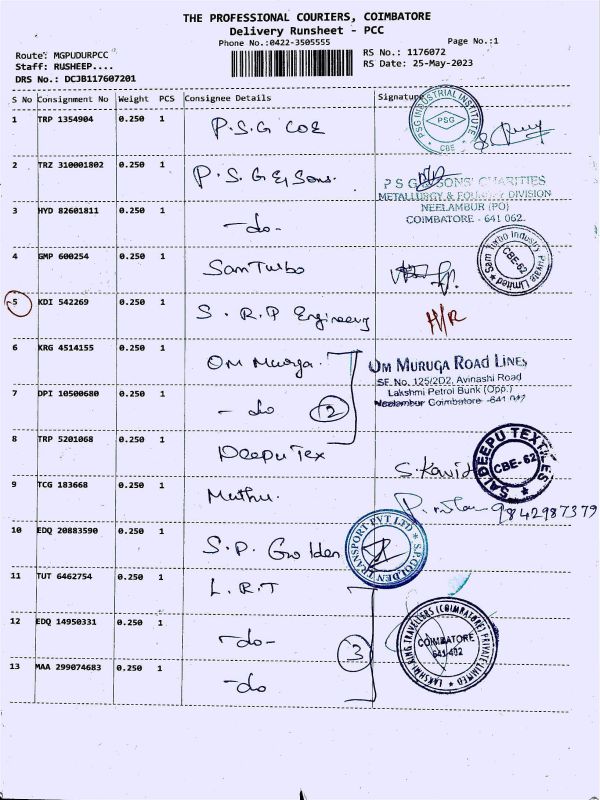 THE PROFESSIONAL COURIERS, COIMBATORE
Delivery Runsheet - PCC
Phone No.:0422-3505555
Page No.:1
Route: MGPUDURPCC
Staff: RUSHEEP....
DRS No.: DCJB117607201
RS No.: 1176072
RS Date: 25-May-2023
S No Consignment No Weight PCS Consignee Details Signature
1 TRP 1354904 0.250 1 P.S.G COE
PSG INDUSTRIAL INSTITUTE
PSG
CBE
2 TRZ 310001802 0.250 1 P.S.G & Sons.
P S G & SONS' CHARITIES
METALLURGY & FOUNDRY DIVISION
NEELAMBUR (PO)
COIMBATORE - 641 062.
3 HYD 82601811 0.250 1 -do-
4 GMP 600254 0.250 1 Sam Turbo
Sam Turbo Industry Private Limited
CBE-62
5 KDI 542269 0.250 1 S.R.P Engineerg H/R
6 KRG 4514155 0.250 1 Om Muruga.
OM MURUGA ROAD LINES
SF. No. 125/2D2, Avinashi Road
Lakshmi Petrol Bunk (Opp.)
Neelambur Coimbatore -641 062
7 DPI 10500680 0.250 1 - do 2
8 TRP 5201068 0.250 1 Deepu Tex
SAI DEEPU TEXTILES
CBE-62
S. Kavid
9 TCG 183668 0.250 1 Muthu. 9842987379
10 EDQ 20883590 0.250 1 S.P. Golden
S.P.GOLDEN TRANSPORT PVT LTD
11 TUT 6462754 0.250 1 L.R.T
12 EDQ 14950331 0.250 1 -do- 3
LAKSHMI RING TRAVELERS (COIMBATORE) PRIVATE LIMITED
COIMBATORE
641 402
13 MAA 299074683 0.250 1 -do